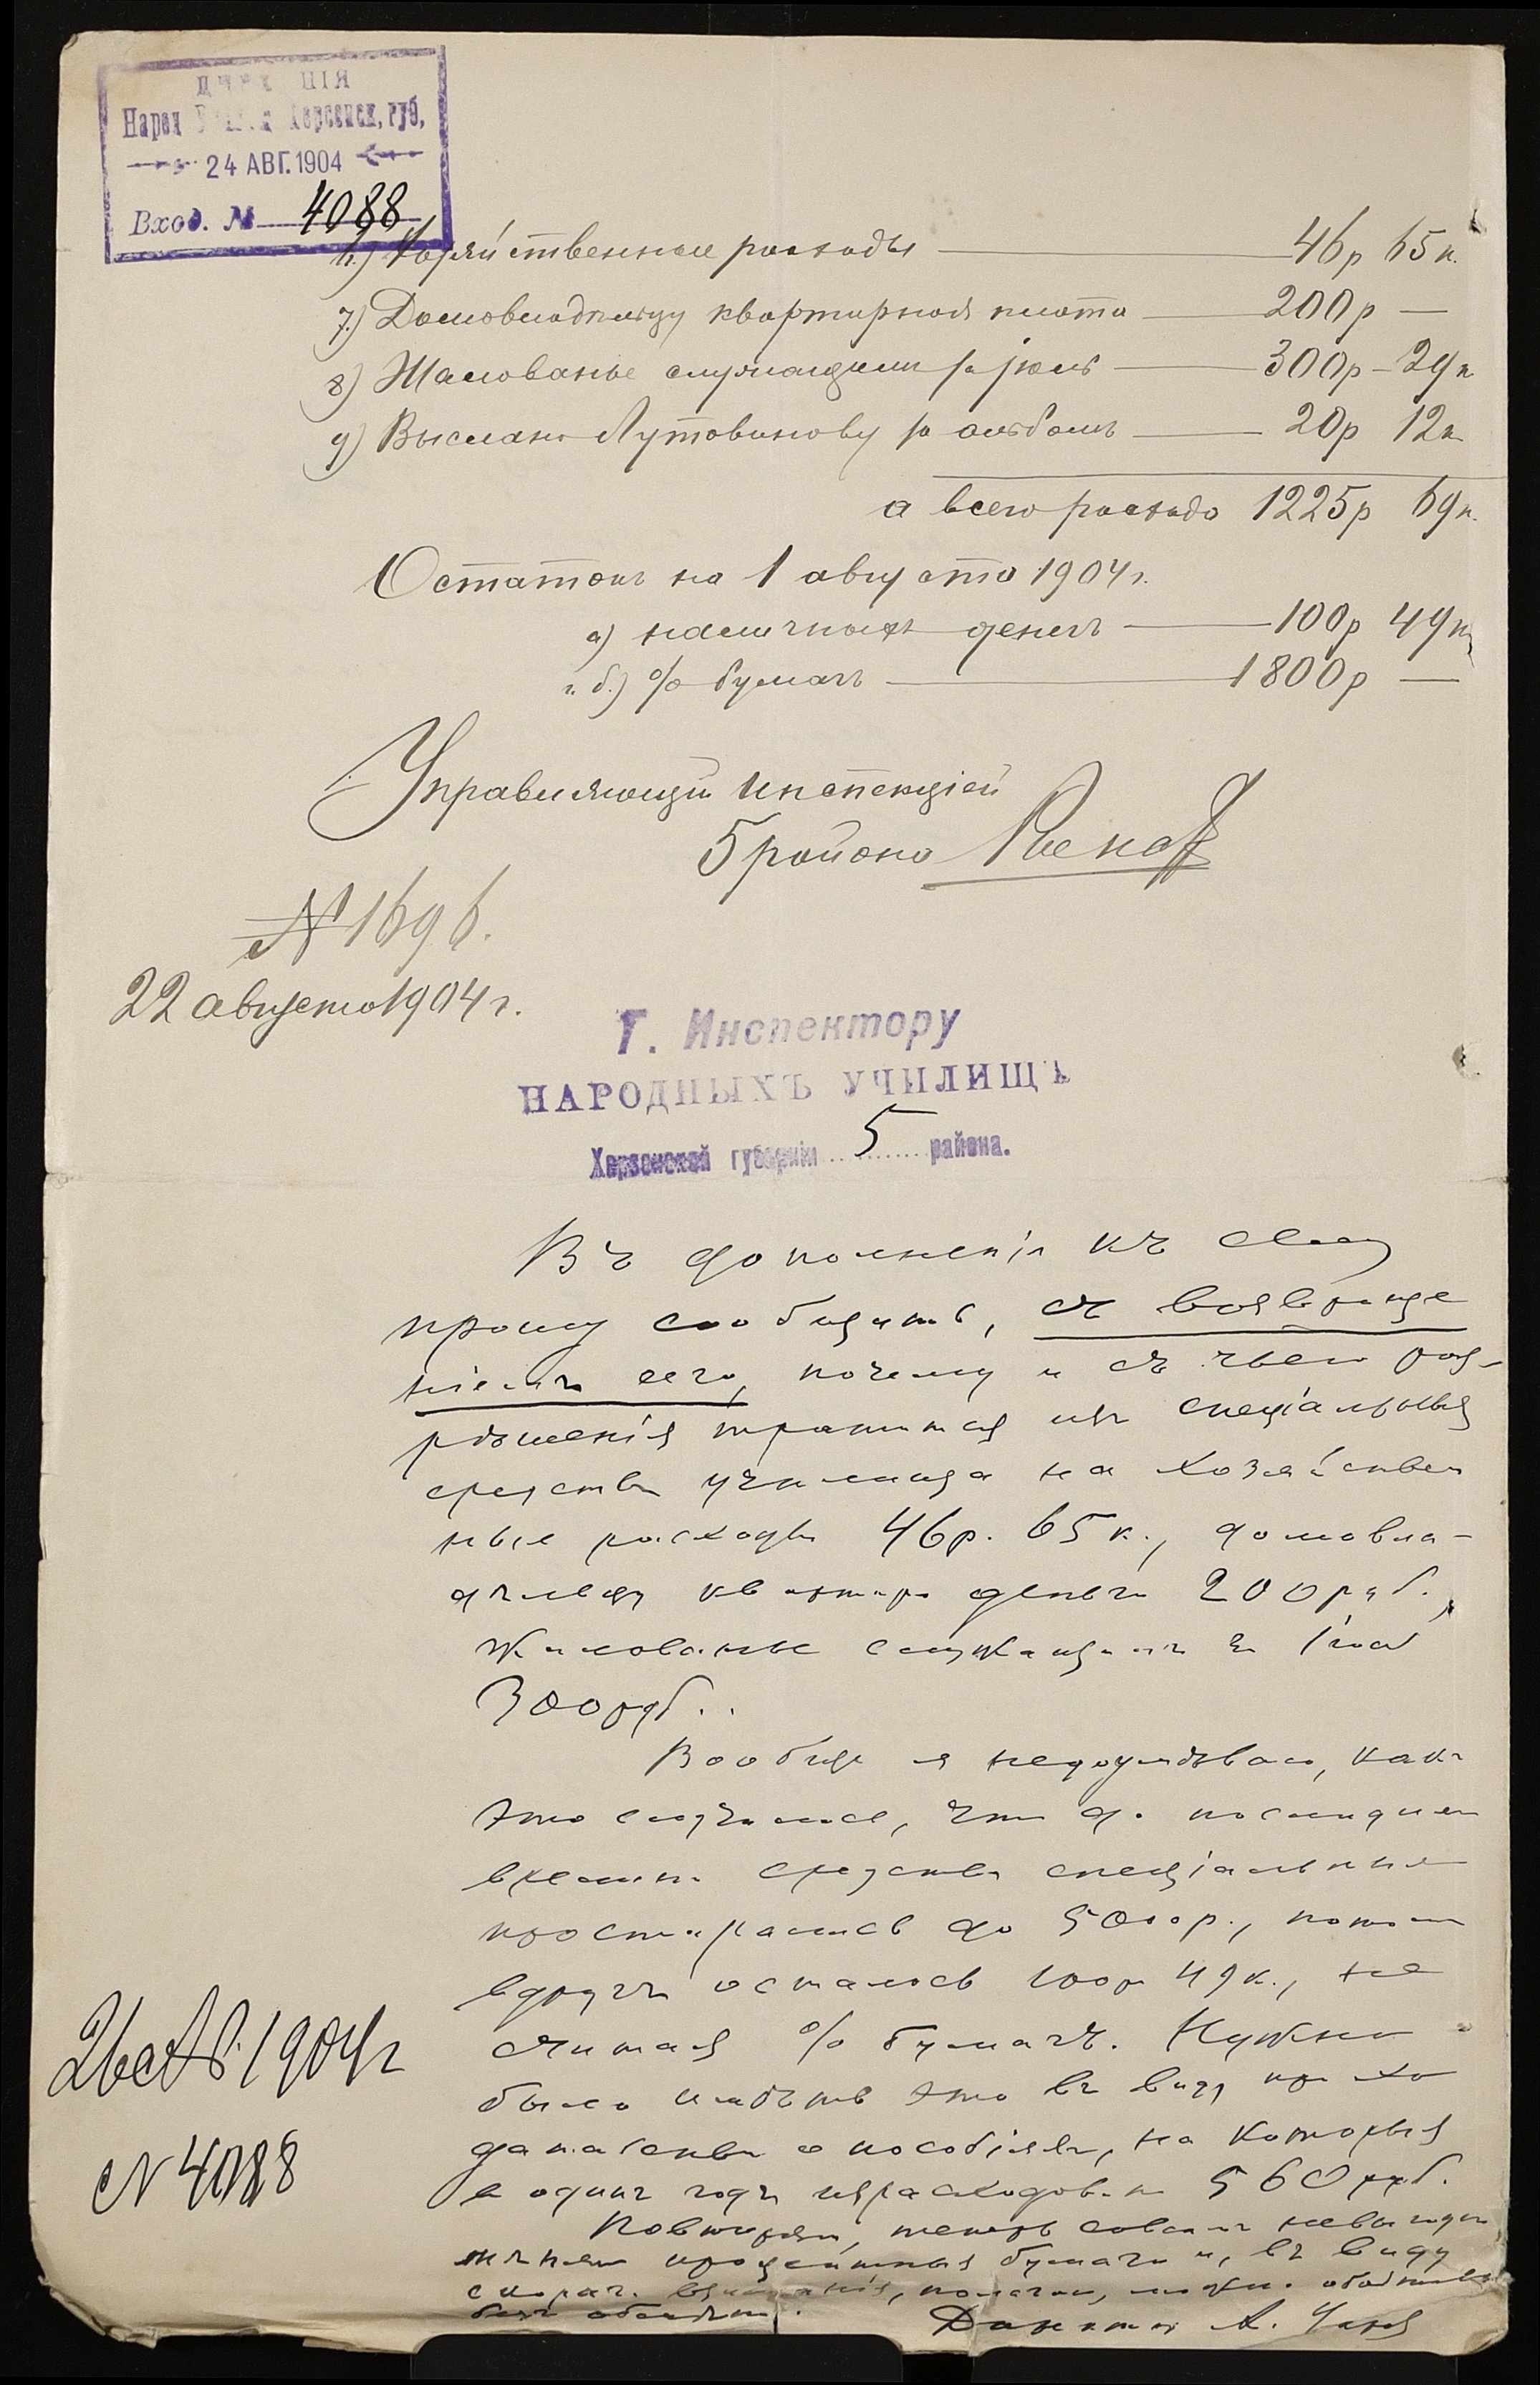 ДИРЕКЦІЯ
Народ. Училищ. Херсонск. губ.
24 АВГ. 1904
Вход. № 4088
6) Хозяйственные расходы — 46р 65к.
7) Домовладѣльцу квартирная плата — 200р —
8) Жалованье служащимъ за іюль — 300р – 29к
9) Выслано Лутовинову за альбомъ — 20р 12к
а всего расхода 1225р 69к.
Остатокъ на 1 августа 1904 г.
а) наличныхъ денегъ — 100р 49к
и б) % бумагъ — 1800р —
Управляющій инспекціей
5 района
№ 1696.
22 августа 1904 г.
Г. Инспектору
НАРОДНЫХЪ УЧИЛИЩЪ
Херсонской губерніи 5 района.
Въ дополненіе къ сему
прошу сообщить, съ возвраще
ніемъ сего, почему и съ чьего раз-
рѣшенія тратится изъ спеціальныхъ
средствъ училища на хозяйствен
ные расходы 46р. 65к., домовла-
дѣльцу квартир. деньги 200 руб.,
жалованье служащимъ за іюль
300 руб..
Вообще я недоумѣваю, какъ
это случилось, что до послѣдняго
времени средства спеціальныя
простирались до 500р., потомъ
вдругъ осталось 100р 49к., не
считая % бумагъ. Нужно
было имѣть это въ виду при хо
датайствѣ о пособіяхъ, на которыя
въ одинъ годъ израсходовано 560 руб.
Повторяю, теперь совсѣмъ невыгодно
мѣнять процентныя бумаги и, въ виду
полагаю, можно обойтись
безъ
Директоръ А.
26 авг. 1904 г
№ 4088